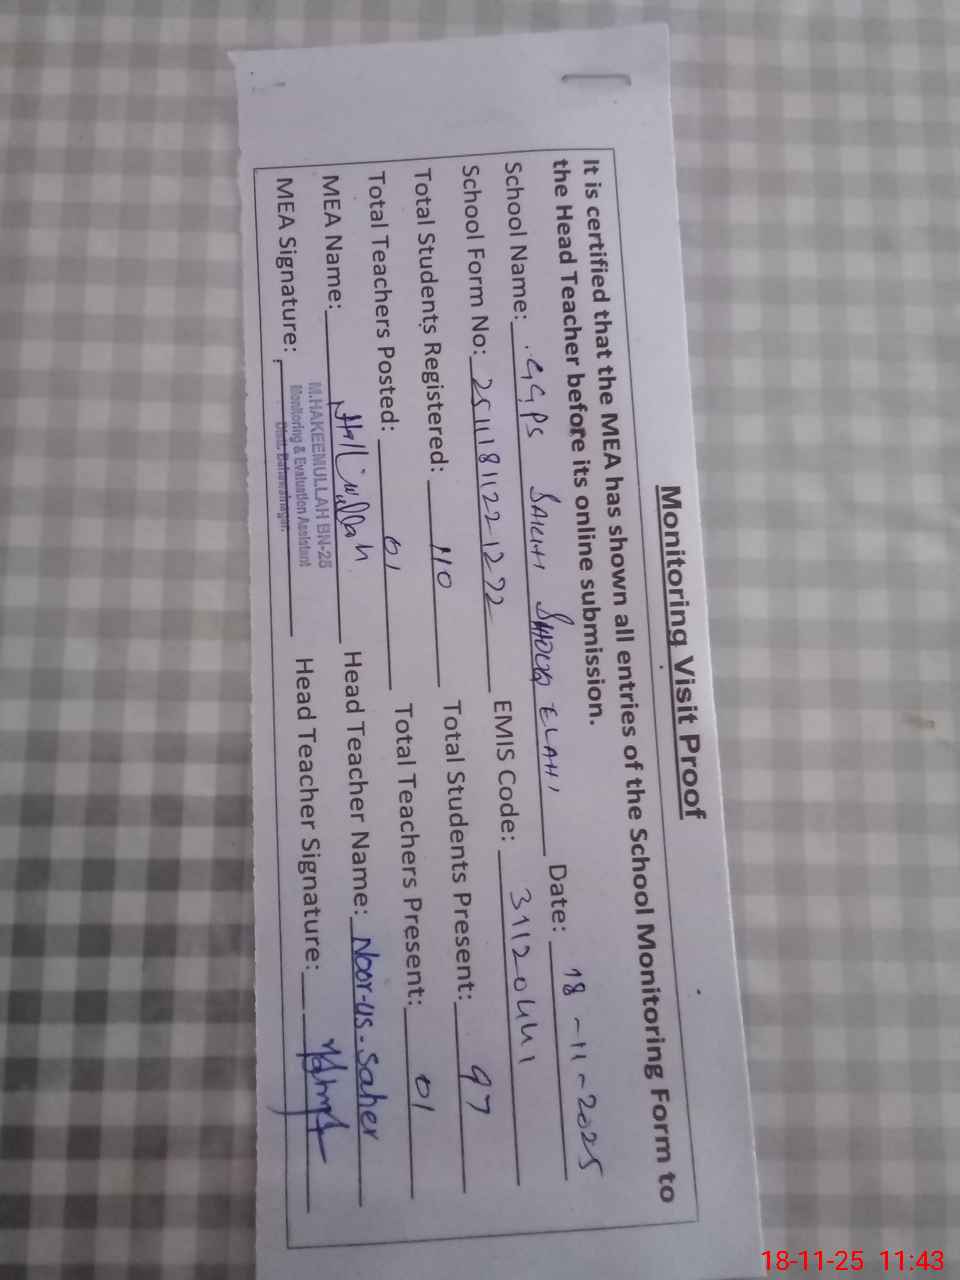 Monitoring Visit Proof
It is certified that the MEA has shown all entries of the School Monitoring Form to
the Head Teacher before its online submission.
School Name: GGPS SAKHI SHOUQ ELAHI Date: 18-11-2025
School Form No: 25111811221272 EMIS Code: 31120441
Total Students Registered: 110 Total Students Present: 97
Total Teachers Posted: 01 Total Teachers Present: 01
MEA Name: Head Teacher Name: Noor-us-Saher
M.HAKEEMULLAH BN-25
Monitoring & Evaluation Assistant
Distt. Bahawalnagar.
MEA Signature: Head Teacher Signature:
18-11-25 11:43